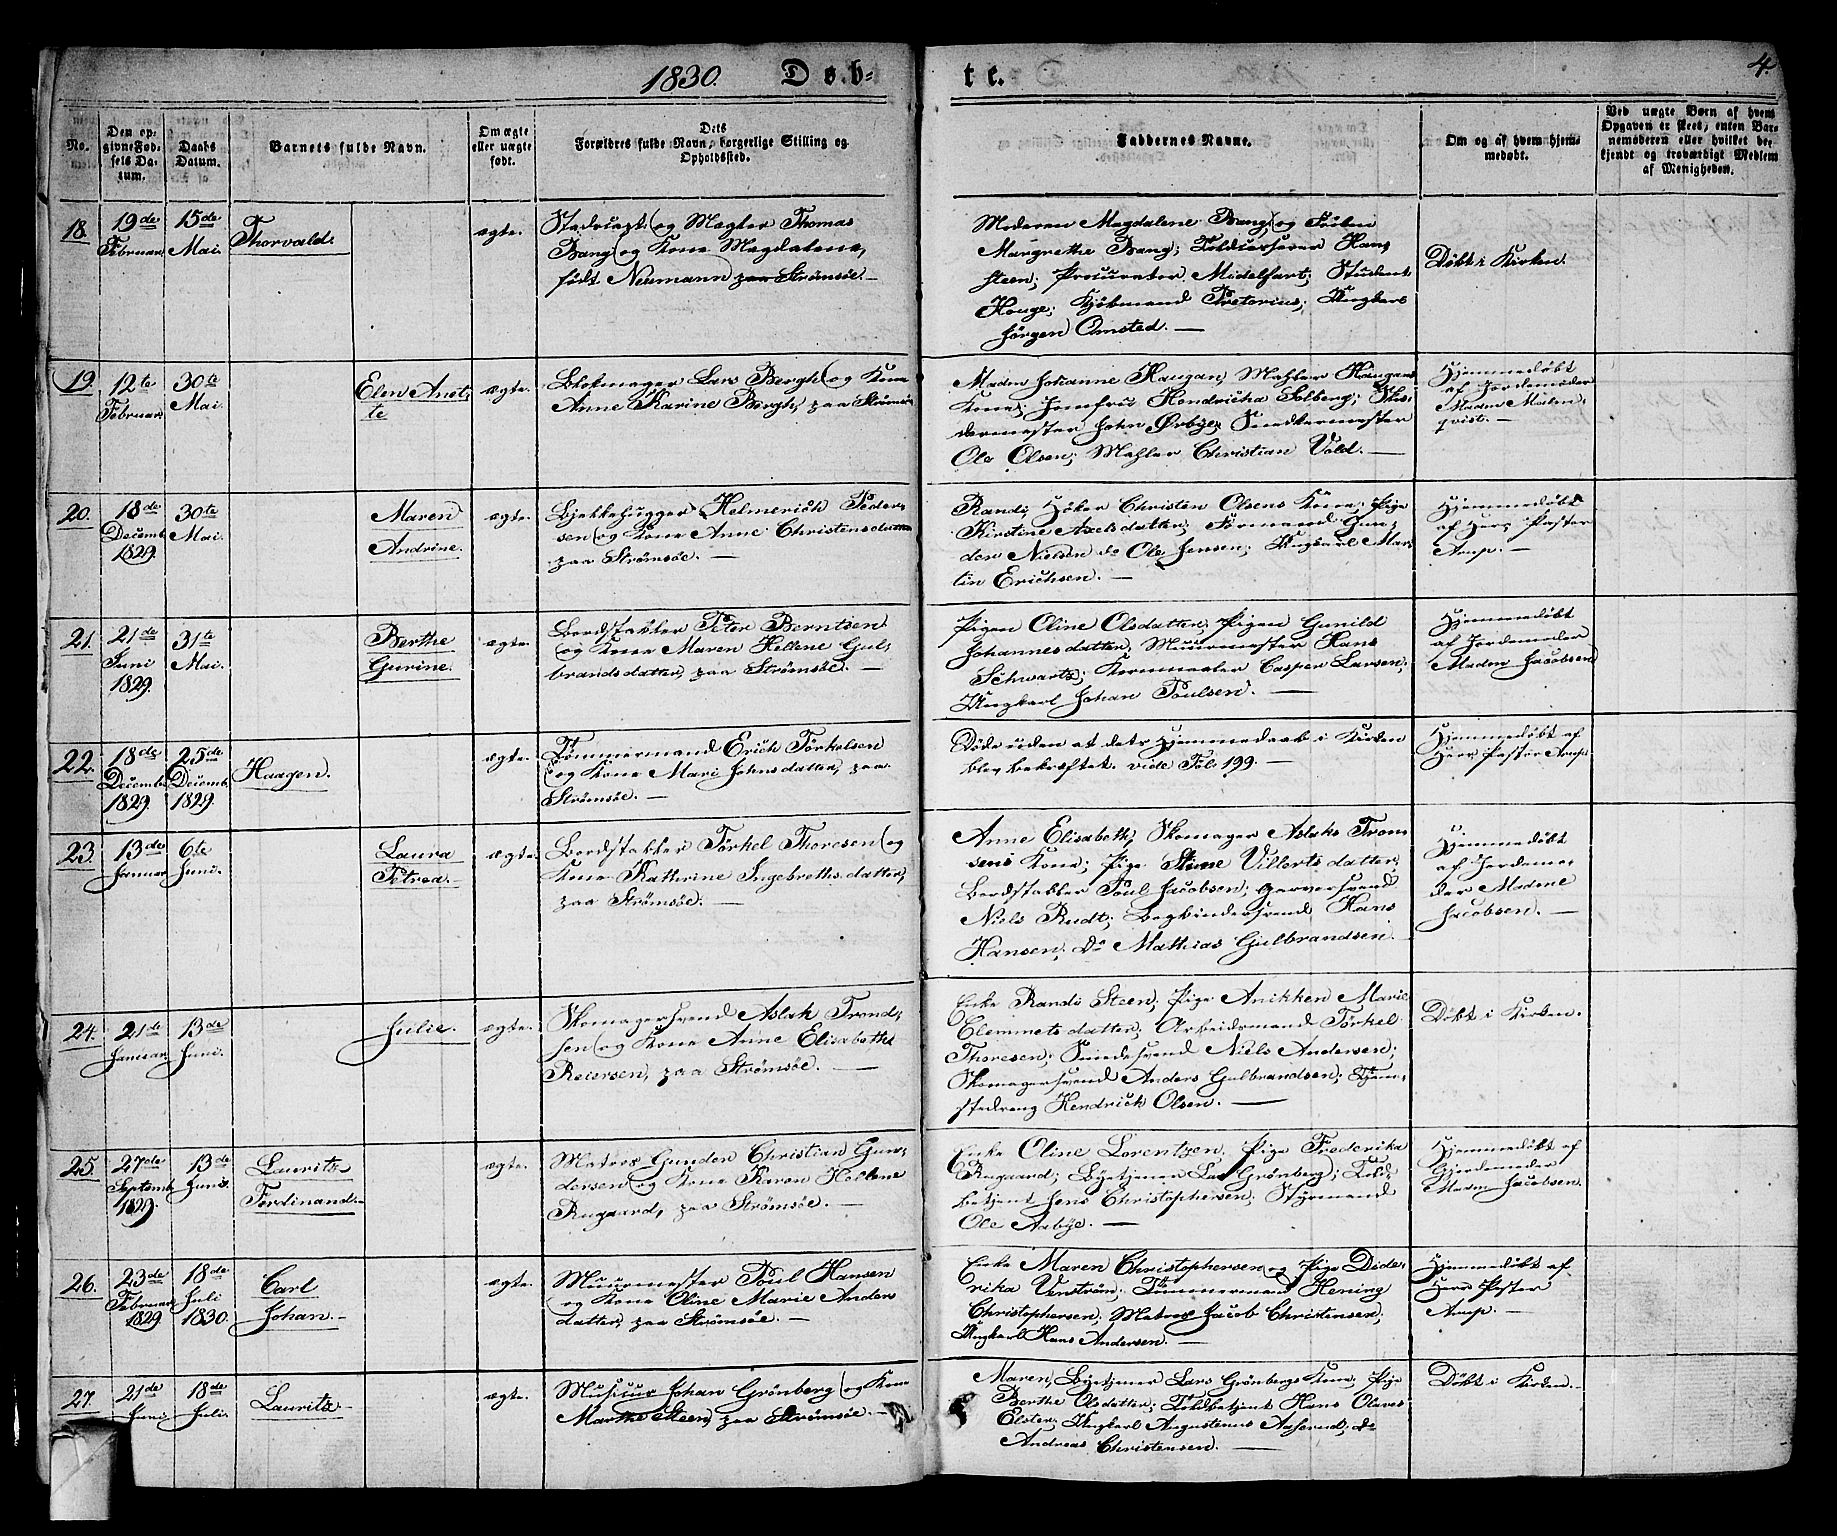 1830. Døb=
te.
4.
No.
Den op=
givne Fød=
sels Da=
tum.
Daabs
Datum.
Barnets fulde Navn.
Om ægte
eller uægte
født.
Dets
Forældres fulde Navn, borgerlige Stilling og
Opholdssted.
Faddernes Navne.
Om og af hvem hjem=
medøbt.
Ved uægte Børn af hvem
Opgaven er skeet, enten Bar=
nemoderen eller hvilket be=
kjendt og troværdigt Medlem
af Menigheden.
18.
19de
Februar
15de
Mai.
Thorvald.
ægte.
og Mægler Thomas
Bang og Kone Magdalena,
født Neumann paa Strømsøe. —
Moderen Magdalene Bang og Frøken
Margrethe Bang; Toldcasserer Hans
Steen; Procurator Midelfart; Student
Houge; Kjøbmand Pretorius; Ungkarl
Jørgen Omsted. —
Døbt i Kirken.
19.
12te
Februar
30te
Mai.
Elen Anet,
te
ægte.
Blokmager Lars Bergh og Kone
Anne Karine Bergh, paa Strømsøe
Madm Johanne Haugan, Mahler Haugans
Kone, Jomfru Hendricka Solberg; Skræ
dermester John Ørbye; Snedkermester
Ole Olsen; Mahler Christian Vold. —
Hjemmedøbt
af Jordemoder
Madm Malm,
qvist. —
20.
18de
Decemb.
1829.
30te
Mai.
Maren
Andrine.
ægte.
Bjelkehugger Helmerich Peder,
sen og Kone Anne Christensdatter
paa Strømsøe. —
Randi, Høker Christen Olsens Kone; Pige
Kirstine Axelsdatter; Formand Gun,
der Nielsen do Ole Jensen; Ungkarl Mar,
tin Erichsen. —
Hjemmedøbt
af Herr Pastor
Arup. —
21.
21de
Juni
1829.
31te
Mai.
Berthe
Gurine.
ægte.
Bordstabler Peter Berntsen
og Kone Maren Hellene Gul,
brandsdatter, paa Strømsøe. —
Pigen Oline Olsdatter; Pigen Gunild
Johannesdatter; Muurmester Hans
Schwartz; Kornmaaler Casper Larsen;
Ungkarl Johan Poulsen. —
Hjemmedøbt
af Jordemoder
Madm Jacobsen
22.
18de
Decemb.
1829.
25de
Decemb.
1829.
Haagen.
ægte.
Tømmermand Erich Torkelsen
og Kone Mari Johnsdatter, paa
Strømsøe. —
Døde uden at dets Hjemmedaab i Kirken
blev bekræftet. vide Fol. 199. —
Hjemmedøbt af
Herr Pastor Arup.
23.
13de
Januar
6te
Juni.
Laura
Petrea.
ægte.
Bordstabler Torkel Thoresen og
Kone Kathrine Ingebrethsdatter,
paa Strømsøe. —
Anne Elisabeth, Skomager Aslaks Tron
sens Kone; Pige Stine Villertsdatter;
Bordstabler Poul Jacobsen; Garversvend
Niels Rudt; Bogbindersvend Hans
Hansen; Do Mathias Gulbrandsen.
Hjemmedøbt
af Jordemo,
der Madme
Jacobsen. —
24.
21de
Januar.
13de
Juni.
Julie.
ægte.
Skomagersvend Aslak Trond,
sen og Kone Anne Elisabeth
Reiersen, paa Strømsøe. —
Enke Randi Steen; Pige Anikken Marie
Clemmetsdatter; Arbeidsmand Torkel
Thoresen; Smedesvend Niels Andersen;
Skomagersvend Anders Gulbrandsen; Tjene,
stedreng Hendrich Olsen. —
Døbt i Kirken.
25.
27de
Septemb.
1829.
13de
Juni.
Lauritz
Ferdinand.
ægte.
Matros Gunder Christian Gun,
dersen og Kone Karen Hellene
Rugaard, paa Strømsøe. —
Enke Oline Lorentzen, Pige Frederika
Rugaard; Byetjener Lars Grønberg; Told,
betjent Jens Christophersen; Styrmand
Ole Aabye. —
Hjemmedøbt af
Gjordemoder
Madm Jacobsen.
26.
23de
Februar
1829
18de
Juli
1830.
Carl
Johan. —
ægte.
Muurmester Poul Hansen
og Kone Oline Marie Anders
datter, paa Strømsøe. —
Enke Maren Christophersen og Pige Dide,
rika Venstrøm; Tømmermand Hening
Christophersen; Matros Jacob Christensen;
Ungkarl Hans Andersen. —
Hjemmedøbt af
Herr Pastor
Arup. —
27.
21de
Juni
18de
Juli.
Lauritz.
ægte.
Musicus Johan Grønberg og Kone
Marthe Steen, paa Strømsøe. —
Maren, Byetjener Lars Grønbergs Kone; Pige
Berthe Olsdatter; Toldbetjent Hans Olaves
Elster; Ungkarl Augustinus Aaserud; do
Andreas Christensen. —
Døbt i Kirken. —